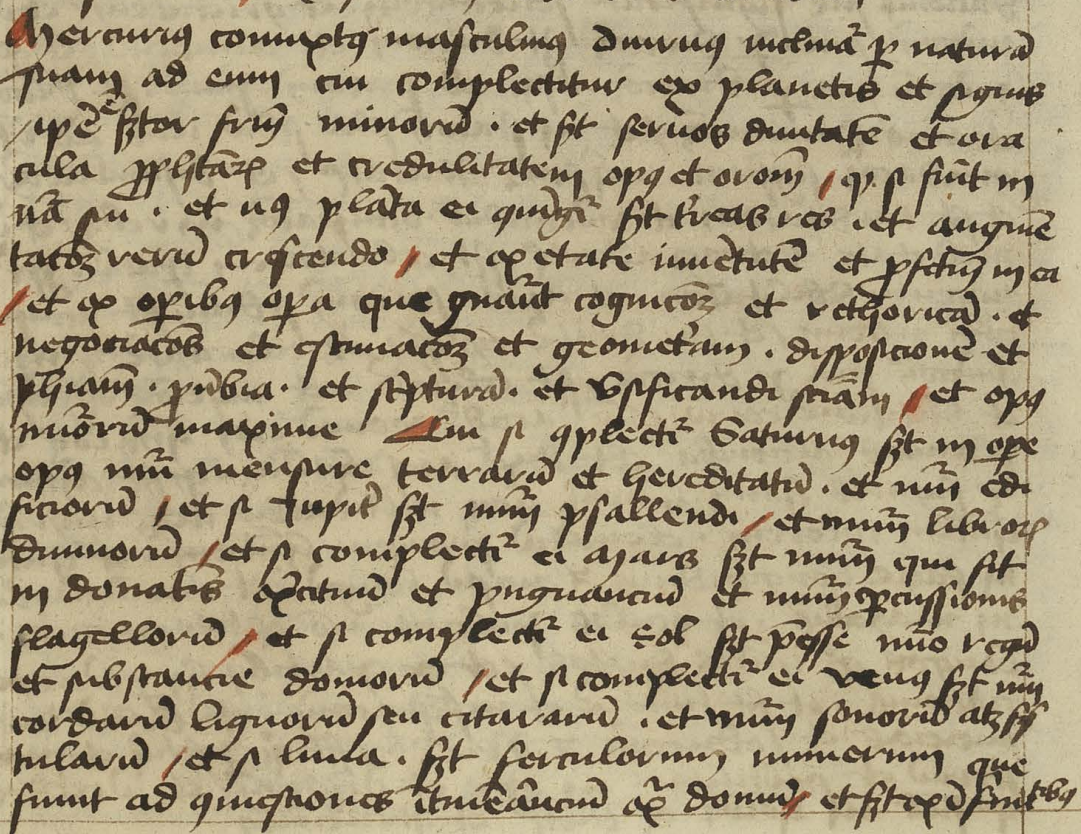 Mercurius commixtus masculinus diurnus inclinat per naturam
suam ad eum cui complectitur ex planetis et signis
ipse est significator fratrum minorum . et significat servos divitatem et ora
cula prophetarum et credulitatem opus et orationem / si fuerit in
natura sua . et planeta ei significat terreas res . et augmen
tationem rerum crescendo / et ex etate iuventutem et profectum in ea
/ et ex operibus opera que generant cognicionem et rethoricam . et
negociaciones et estimacionem et geometriam . disposicionem et
philosophiam . proverbia . et scripturam . et versificandi scienciam / et opus
numerorum maxime Cui si complectitur Saturnus significat in opere
opus numeri mensure terrarum et hereditatum . et numerum edi
ficiorum / et si Jupiter significat numerum psallendi / et numerum librorum
divinorum / et si complectitur ei Mars significat numerum qui fit
in donativis exercituum et pugnancium et numerum percussionis
flagellorum / et si complectitur ei Sol significat preesse numero regum
et substancie domorum / et si complectitur ei venus significat numerum
cordarum lignorum seu citararum . et numerum sonorum atque fis
tularum / et si luna . significat ferculorum numerum que
fiunt ad questiones itinerancium extra domum / et significat ex infirmitatibus